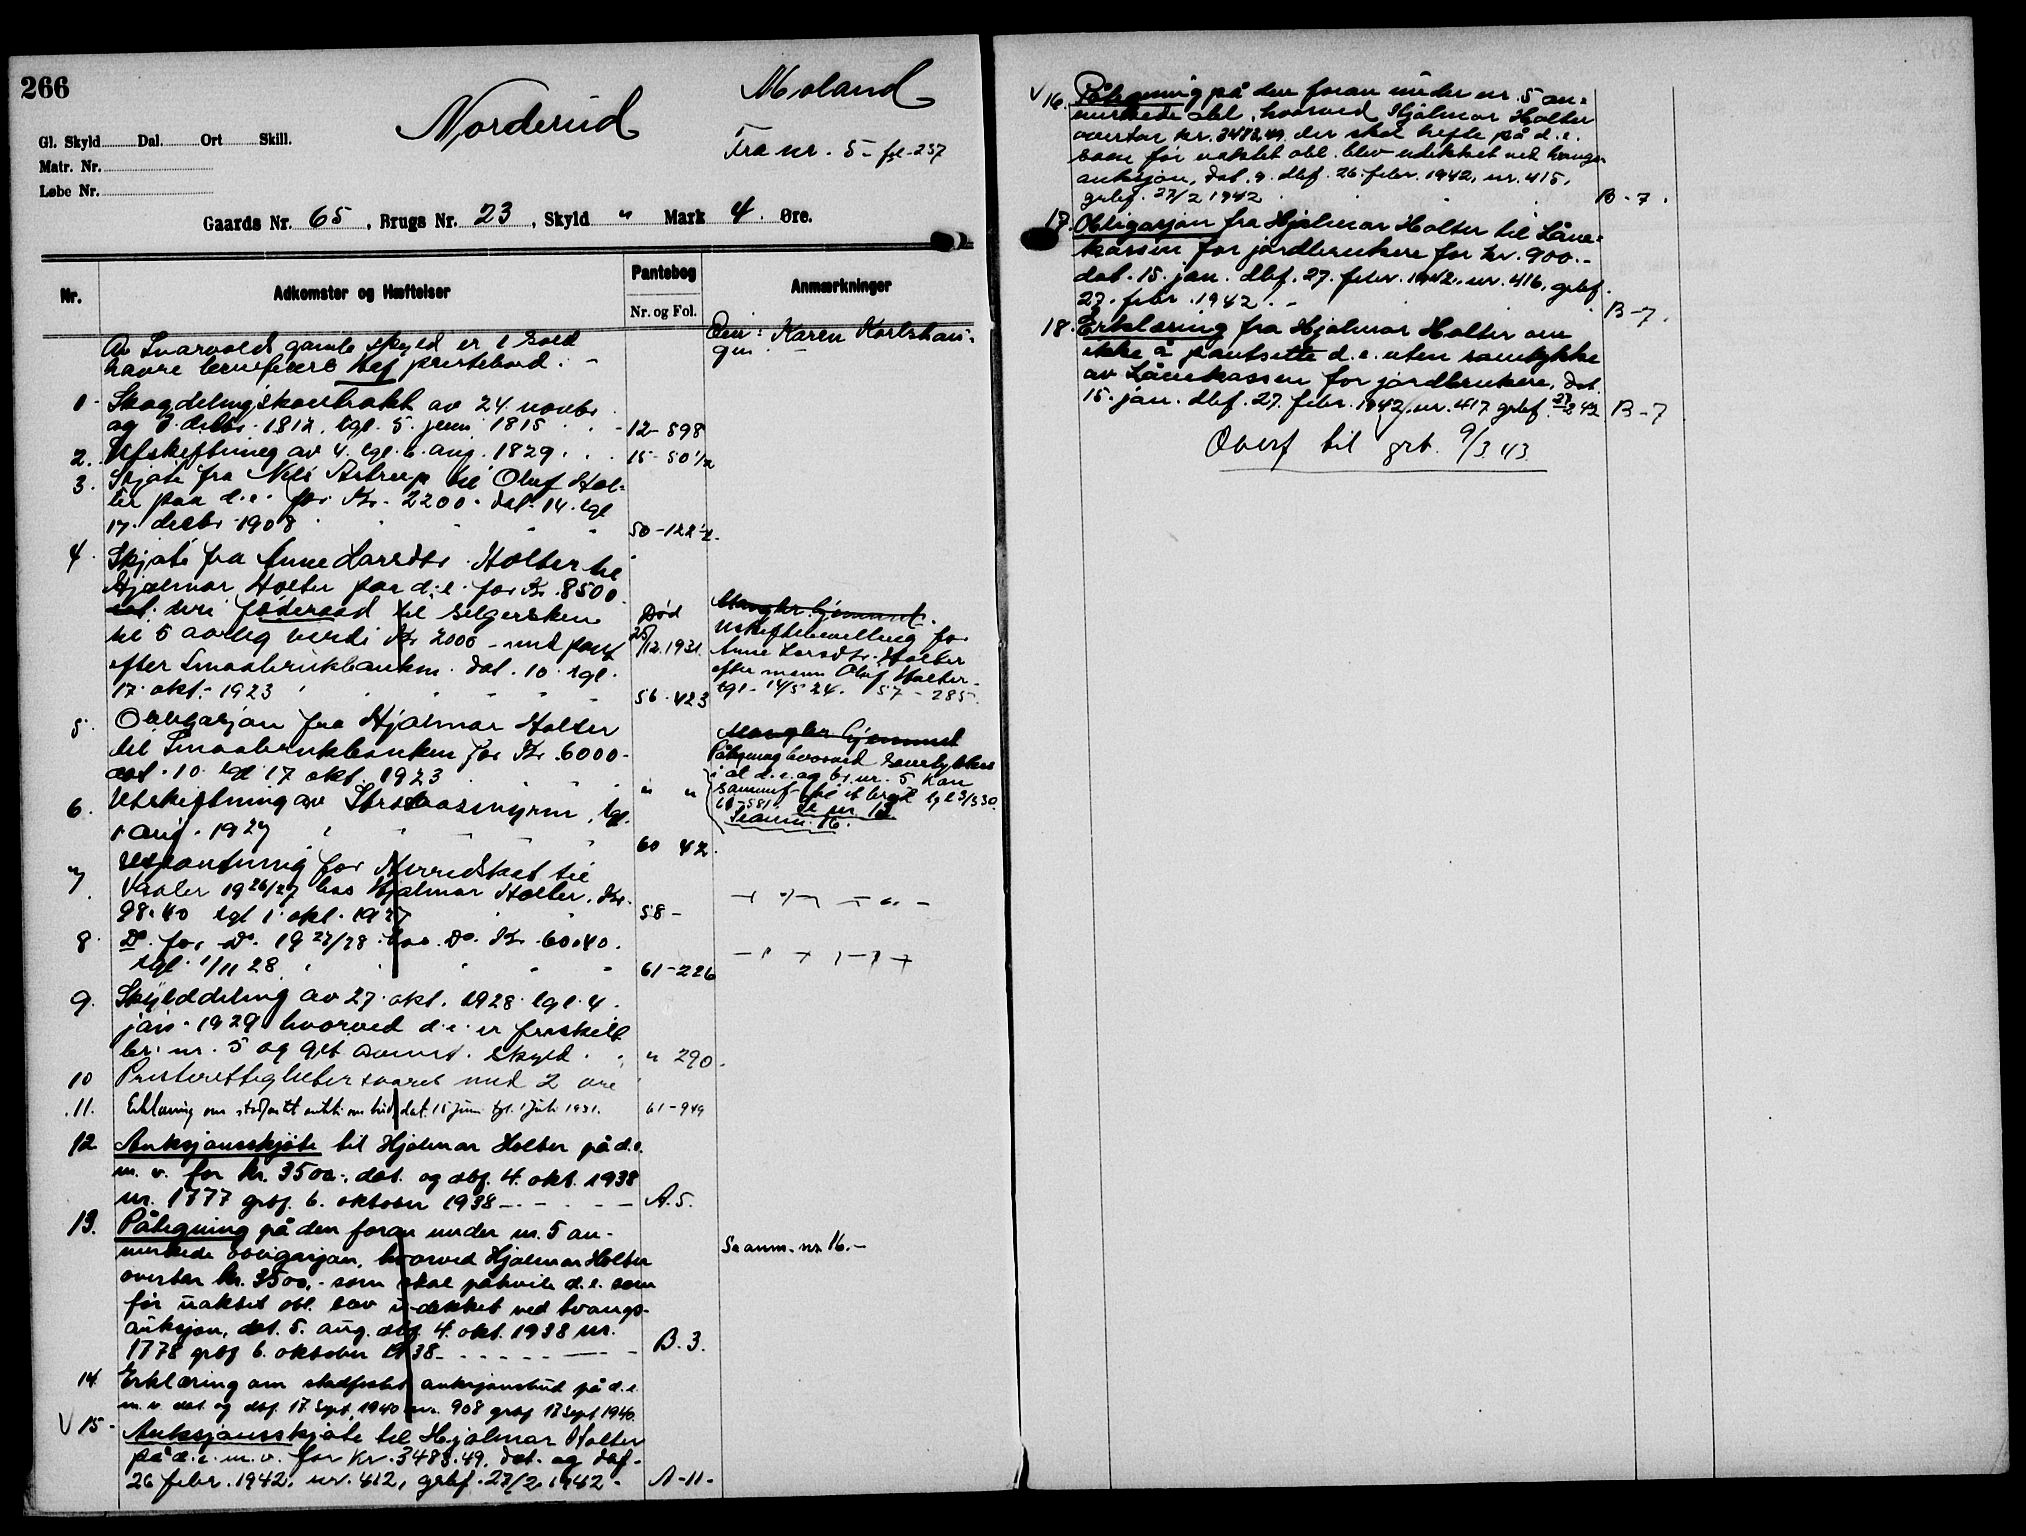 266
Norderud
Moland
Fra nr. 5 - fol - 257
Gl. Skyld Dal. Ort Skill.
Matr. Nr.
Løbe Nr.
Gaards Nr. 65, Brugs Nr. 23, Skyld " Mark 4 Øre.
Nr.
Adkomster og Hæftelser
Pantebog
Nr. og Fol.
Anmærkninger
Av Svarvolds gamle skyld er 1 sold
havre beneficert prestebord. -
Eier: Karen Karlshau-
gen
1 Skogdelingskontrakt av 24. novbr
og 7 decbr. 1812, tgl. 5. juni 1815 12-598
2. Utskiftning av 4. tgl. 6. aug. 1829. 15-50 1/2
3. Skjøte fra Nils Astrup til Oluf Hol-
ter paa d.e. for Kr. 2200. dat. 14. tgl
17. decbr 1908 50-122 1/2
4. Skjøte fra Anne Larsdtr. Holter til
Hjalmar Holter paa d.e. for Kr. 8500
føderaad til selgersken
til 5 aarlig verdi Kr 2000 - med pant
efter Smaabrukbanken. dat. 10. tgl.
17. okt. 1923 56-423
Død
25/12.1931.
Mangler hjemmel.
Uskiftebevilling for
Anne Larsdtr. Holter
efter mann Oluf Holter
tgl. 14/5 24. 57-285.
5. Obligasjon fra Hjalmar Holter
til Smaabrukbanken for Kr. 6000-
dat. 10. tgl 17 okt. 1923 " "
Mangler hjemmel
Påtegning hvorved samtykkes
i at d.e. og br.nr. 5 kan
sammenf. til et bruk tgl 3/3 30
61-581. Se nr. 13
Se anm. 16.
6. Utskiftning av , tgl.
1 aug. 1927 60 42.
7. Utpantning for Herredskat til
Vaaler 1926/27 hos Hjalmar Holter. Kr.
98.40 tgl 1. okt. 1927 58-
8. Do. for Do. 1927/28 hos Do. Kr. 60.40.
tgl. 1/11 28 61-226
9. Skylddeling av 27. okt. 1928 tgl. 4.
jan. 1929 hvorved d.e. er fraskilt
br. nr. 5 og git anmf. skyld. " 290.
10 Presterettigheter svaret med 2 øre
11. Erklæring om stadfestet auktionsbud dat. 15 juni tgl. 1 juli 1931. 61-949
12 Auksjonsskjøte til Hjalmar Holter på d.e.
m. v. for kr. 3500.-, dat. og dbf. 4. okt. 1938
nr. 1777 grbf. 6. oktober 1938 A. 5.
13. Påtegning på den foran under nr. 5 an-
merkede obligasjon, hvorved Hjalmar Holter
overtar kr. 3500,- som skal påhvile d.e. som
før uaktet obl. blev udekket ved tvangs-
auksjon, dat. 5. aug. dbf 4. okt. 1938 nr.
1778 grbf 6. oktober 1938 B. 3.
Se anm. nr. 16.-
14. Erklæring om stadfestet auksjonsbud på d.e.
m. v. dat. og dbf. 17 Sept. 1940 nr. 908 grbf 18 Sept 1940.
V 15. Auksjonsskjøte til Hjalmar Holter
på d.e. m. v. for kr. 3483.49, dat. og dbf.
26 febr. 1942, nr. 412, grbf. 27/2 1942 - A-11-
V 16. Påtegning på den foran under nr. 5 an-
merkede obl., hvorved Hjalmar Holter
overtar kr. 3483.49, der skal hefte på d.e.
som før uaktet obl. blev udekket ved tvangs-
auksjon, dat. og dbf. 26. febr. 1942, nr. 415,
grbf. 27/2 1942 B-7.
17. Obligasjon fra Hjalmar Holter til Låne-
kassen for jordbrukere for kr. 900.-
dat. 15. jan. dbf. 27. febr. 1942, nr. 416, grbf.
27. febr. 1942. - B-7.
18. Erklæring fra Hjalmar Holter om
ikke å pantsette d.e. uten samtykke
av Lånekassen for jordbrukere, dat.
15. jan. dbf. 27. febr. 1942, nr. 417 grbf. 27/2 42 B-7
Overf til grb. 9/3 43